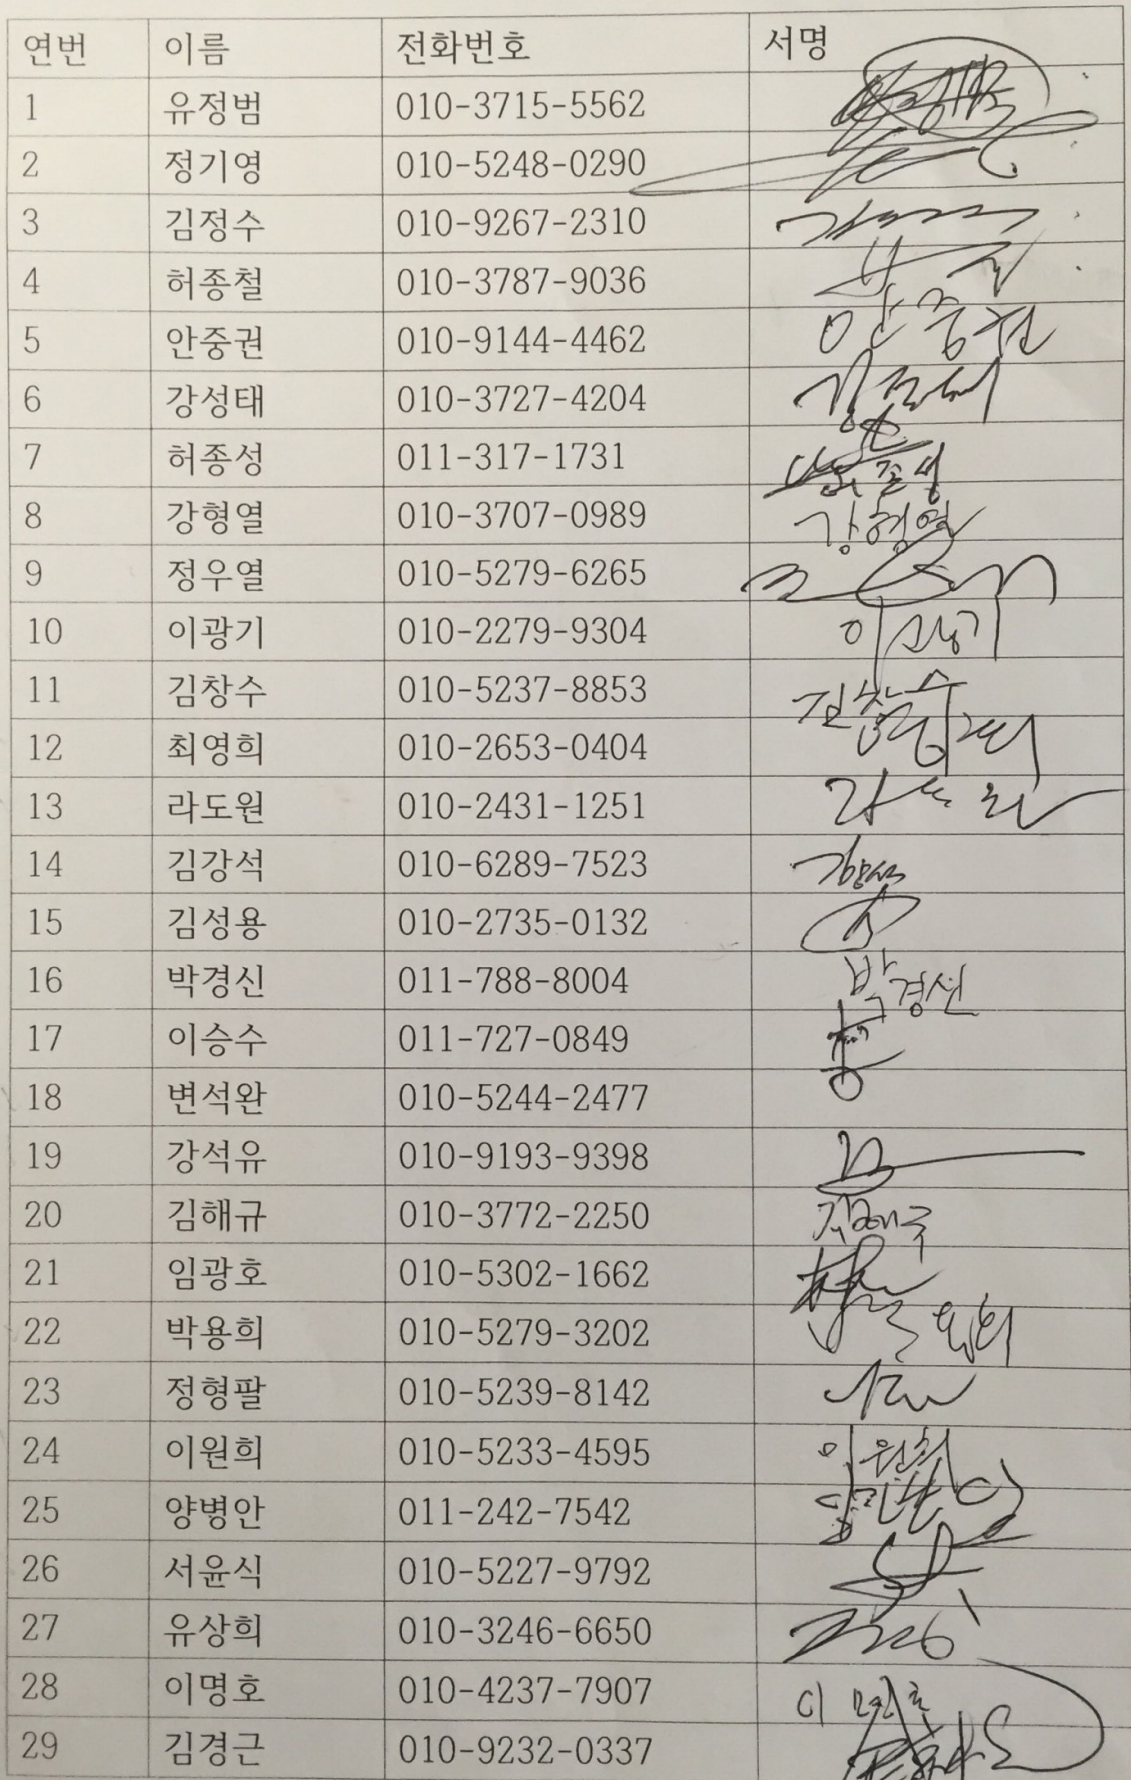 연번 이름 전화번호 서명
1 유정범 010-3715-5562
2 정기영 010-5248-0290
3 김정수 010-9267-2310
4 허종철 010-3787-9036
5 안중권 010-9144-4462 안중권
6 강성태 010-3727-4204
7 허종성 011-317-1731
8 강형열 010-3707-0989 강형열
9 정우열 010-5279-6265
10 이광기 010-2279-9304 이광기
11 김창수 010-5237-8853 김창수
12 최영희 010-2653-0404
13 라도원 010-2431-1251 라도원
14 김강석 010-6289-7523
15 김성용 010-2735-0132
16 박경신 011-788-8004 박경신
17 이승수 011-727-0849
18 변석완 010-5244-2477
19 강석유 010-9193-9398
20 김해규 010-3772-2250
21 임광호 010-5302-1662
22 박용희 010-5279-3202
23 정형팔 010-5239-8142
24 이원희 010-5233-4595 이원희
25 양병안 011-242-7542
26 서윤식 010-5227-9792
27 유상희 010-3246-6650
28 이명호 010-4237-7907 이명호
29 김경근 010-9232-0337